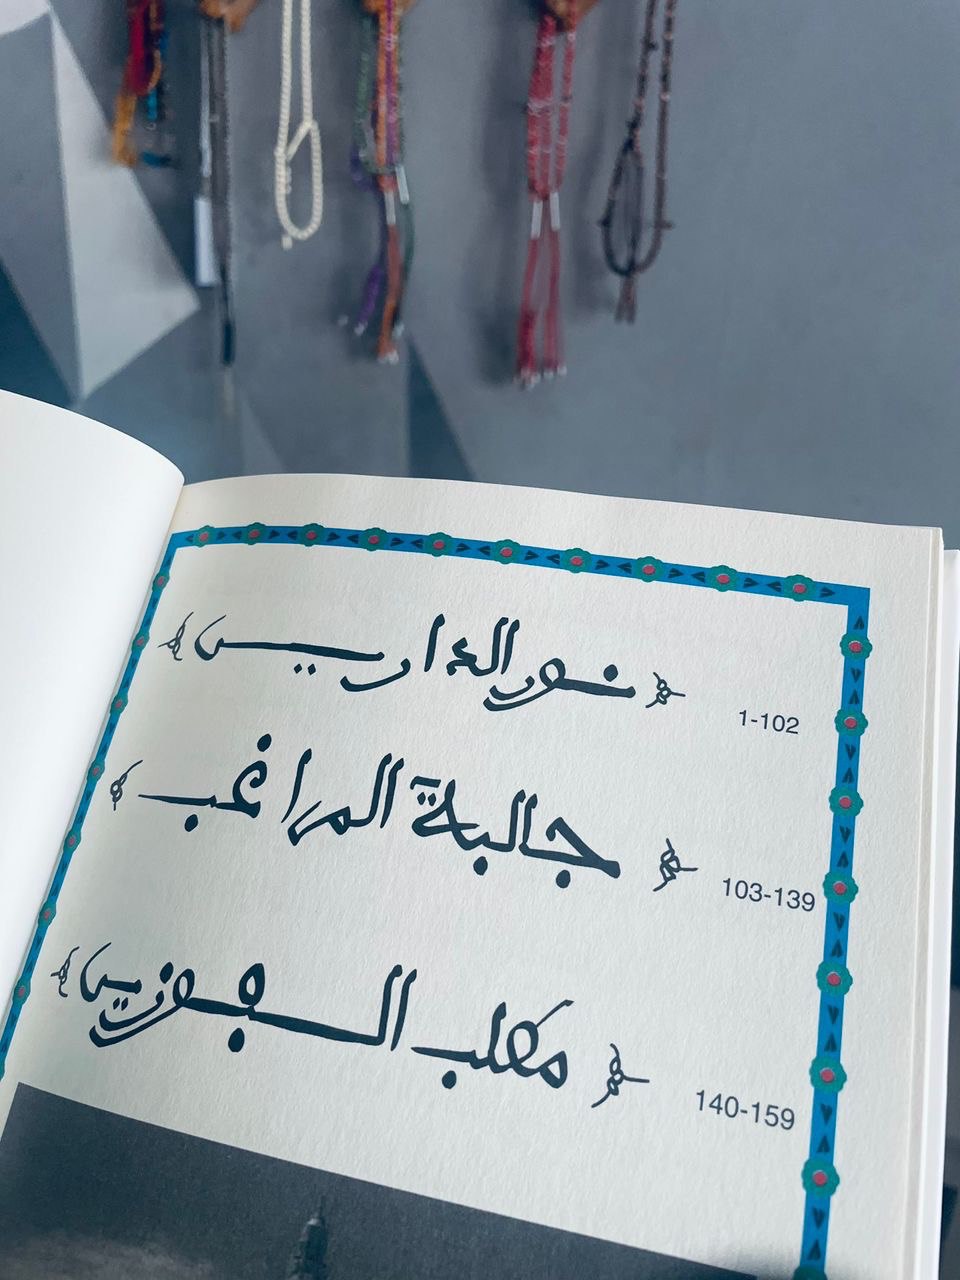 نور الدارين
1-102
جالبة المراغب
103-139
مطلب الفوزين
140-159